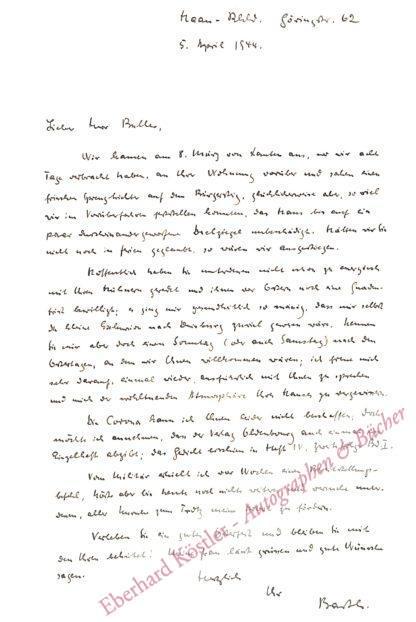 Haan-Rhld. Göringstr. 62
5. April 1944.
Lieber Herr Buller,
Wir kamen am 8. März von Xanten aus, wo wir acht
Tage verbracht haben, an Ihrer Wohnung vorüber und sahen einen
frischen Sprengtrichter auf dem Bürgersteig, glücklicherweise aber, so viel
wir im Vorüberfahren feststellen konnten, das Haus bis auf ein
paar durcheinandergeworfene Dachziegel unbeschädigt. Hätten wir Sie
nicht noch in geglaubt, so wären wir ausgestiegen.
Hoffentlich haben Sie unterdessen nicht schon zu energisch
mit Ihren Hühnern geredet und ihnen vor Ostern noch eine Gnaden-
frist bewilligt; es ging mir gesundheitlich so mässig, dass mir selbst
die kleine nach Duisburg zuviel gewesen wäre. Können
Sie mir aber doch einen Sonntag (oder auch Samstag) nach den
Ostertagen, an dem wir Ihnen willkommen wären; ich freue mich
sehr darauf, einmal wieder ausführlich mit Ihnen zu sprechen
und mich der wohltuenden Atmosphäre Ihres Hauses zu vergewissern.
Die Corona kann ich Ihnen leider nicht beschaffen, doch
möchte ich annehmen, dass der Verlag Oldenbourg auch
Einzelhefte abgibt; das Gedicht erschien in Heft IV,
Vom Militär erhielt ich vor Wochen einen
befehl, bis heute noch nicht
dem, aller zum Trotz mein zu fördern.
Verleben Sie ein gutes und bleiben Sie mit
den Ihren behütet! Meine Frau lässt grüssen und gute Wünsche
sagen.
Herzlich
Ihr
Barth.
Eberhard Köstler - Autographen & Bücher